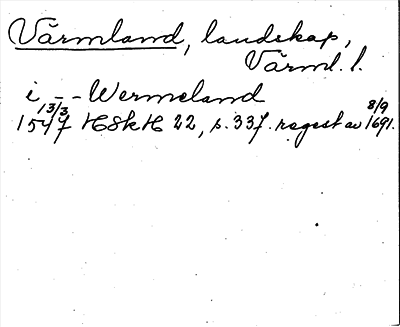 Värmland, landskap,
Värml. l.
i - - Wermeland
1547 13/3 HSkH 22, s. 337. regest av 8/9 1691.